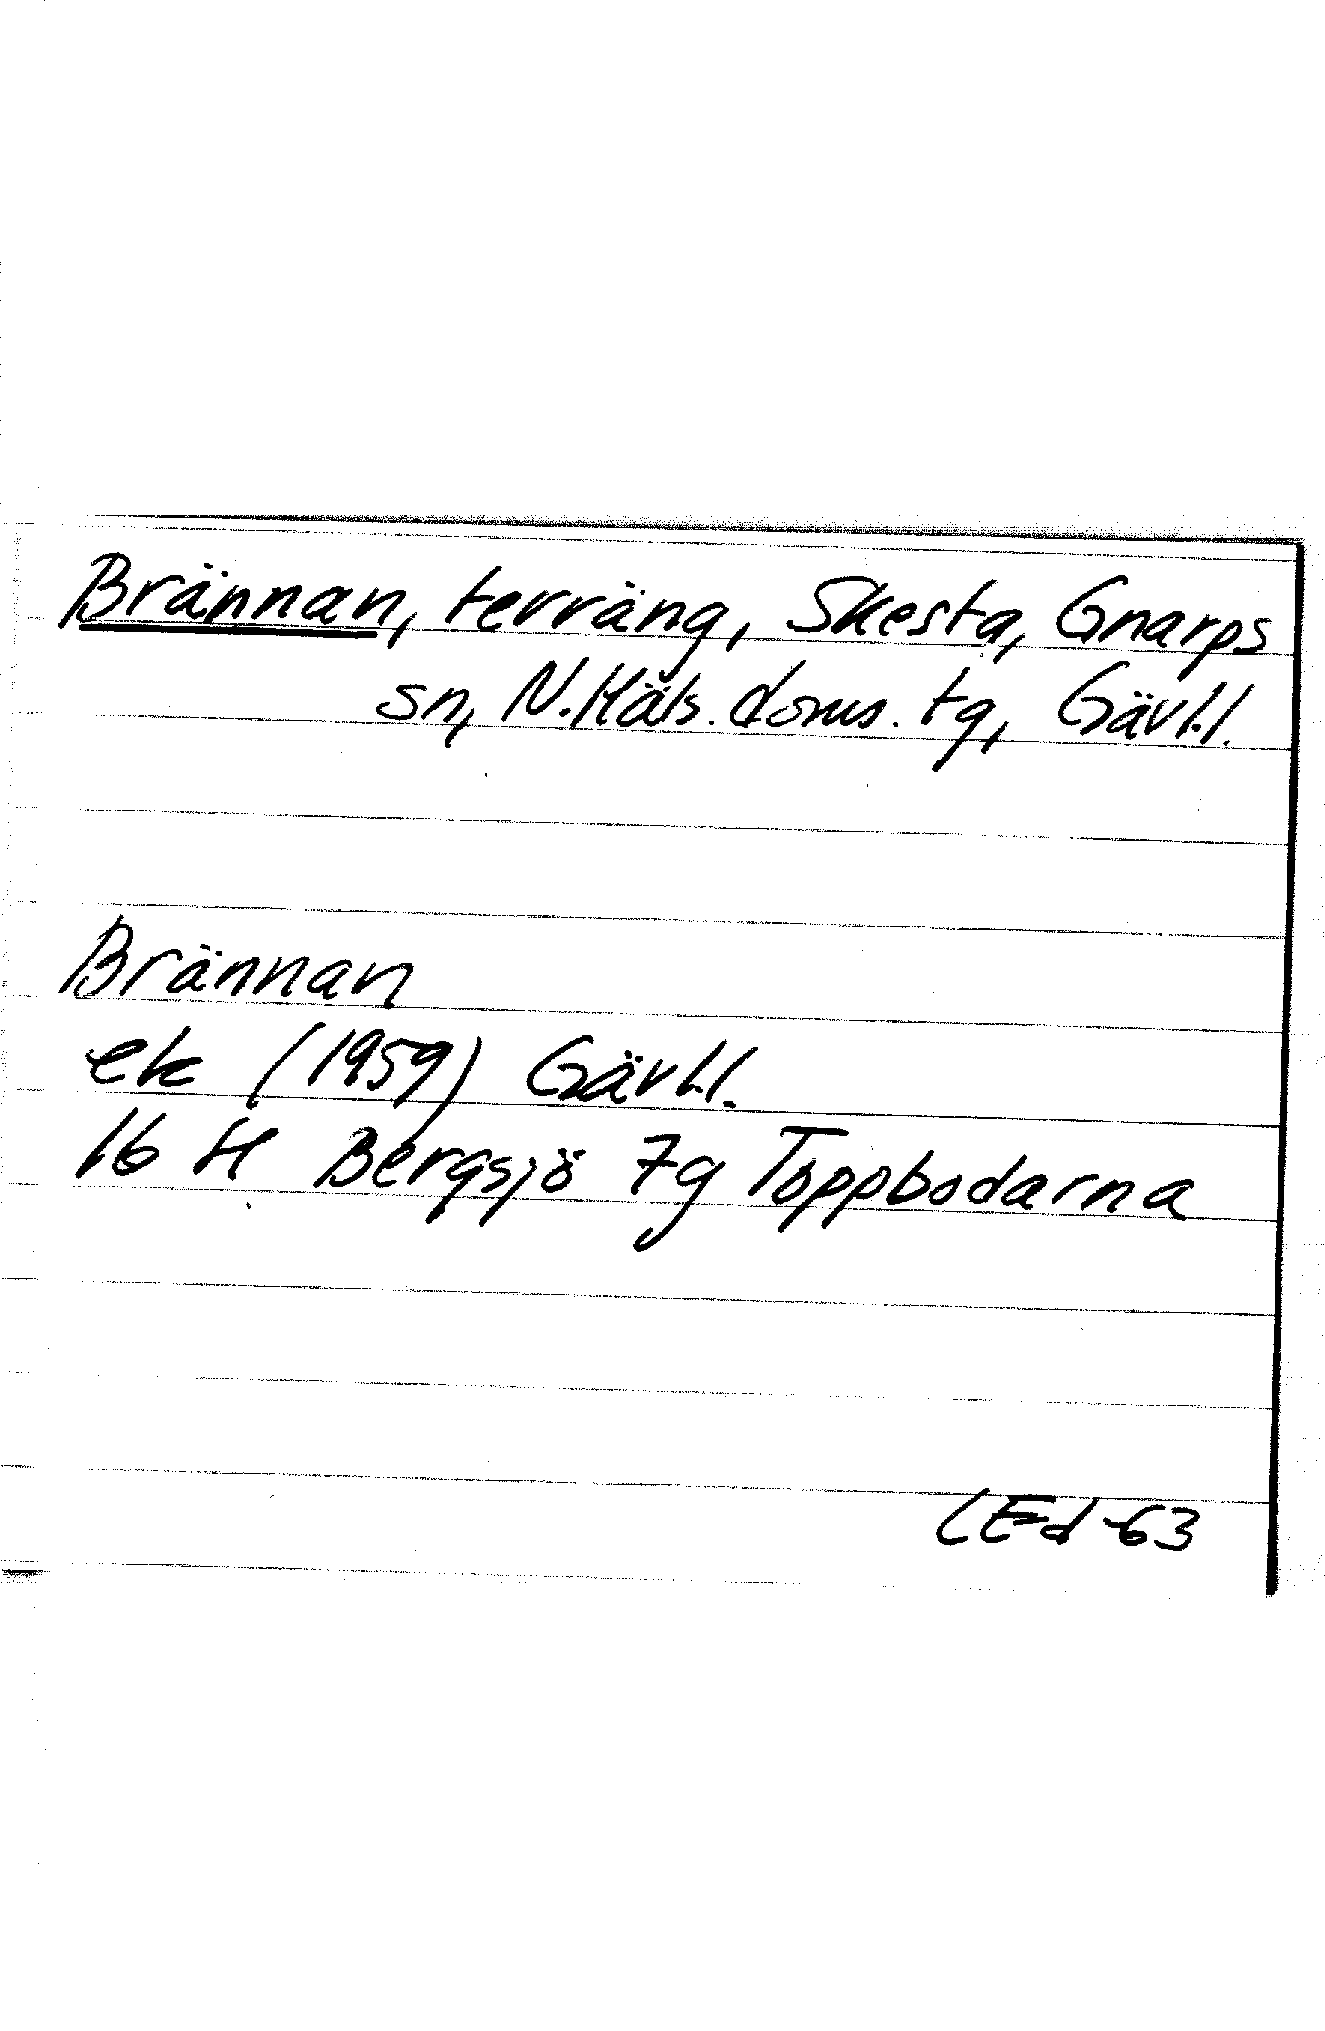 Brännan, terräng, Skesta, Gnarps
sn, N. Häls. doms. tg, Gävl.l.
Brännan
ek (1959) Gävl.l.
16 H Bergsjö 7g Toppbodarna
LEd -63